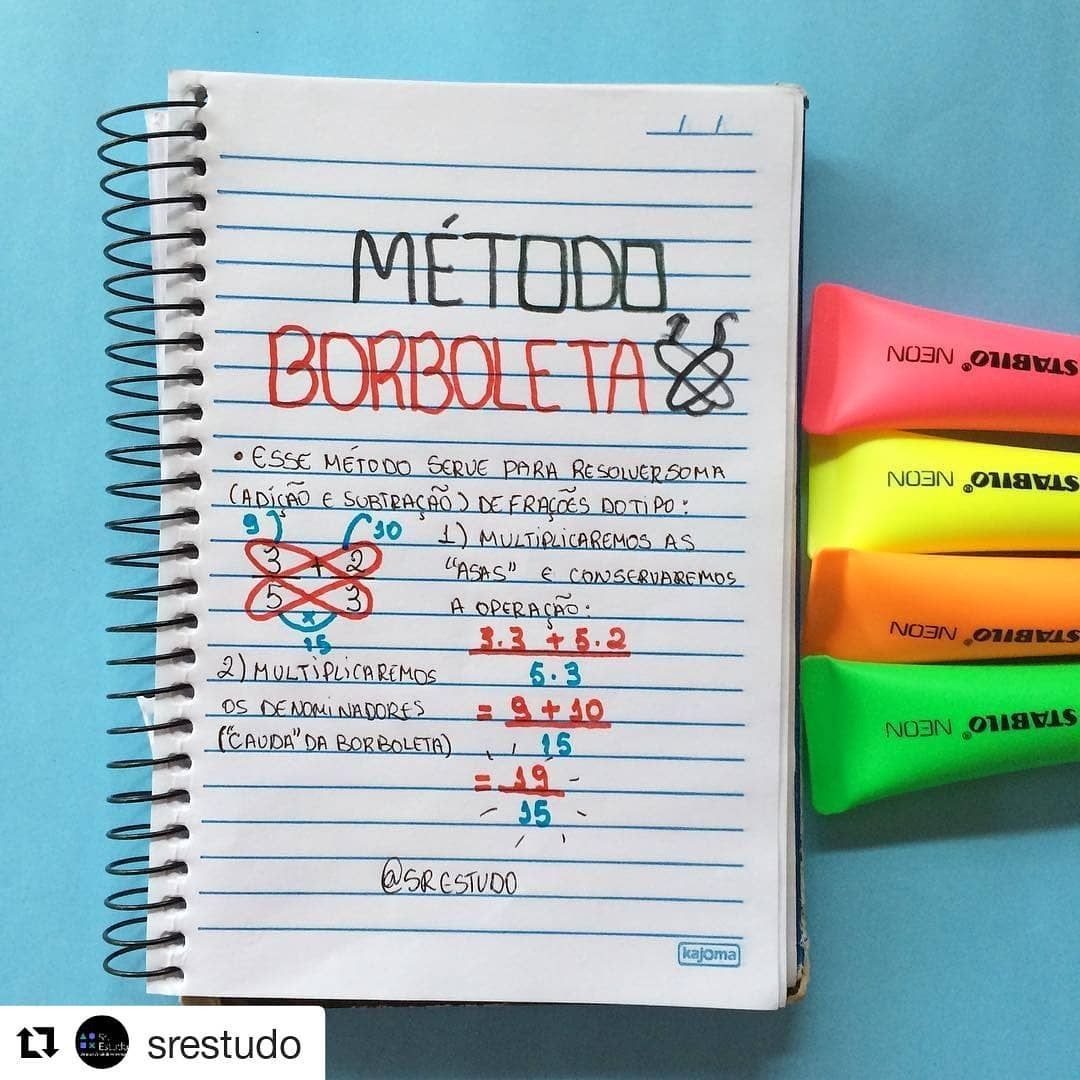 MÉTODO
BORBOLETA
• ESSE MÉTODO SERVE PARA RESOLVER SOMA
(ADIÇÃO E SUBTRAÇÃO) DE FRAÇÕES DO TIPO:
9 10
3 + 2
5 × 3
15
1) MULTIPLICAREMOS AS
"ASAS" E CONSERVAREMOS
A OPERAÇÃO:
3.3 + 5.2
5.3
= 9 + 10
15
= 19
15
2) MULTIPLICAREMOS
OS DENOMINADORES
("CAUDA" DA BORBOLETA)
@SRESTUDO
kajoma
STABILO® NEON
STABILO® NEON
STABILO® NEON
STABILO® NEON
srestudo